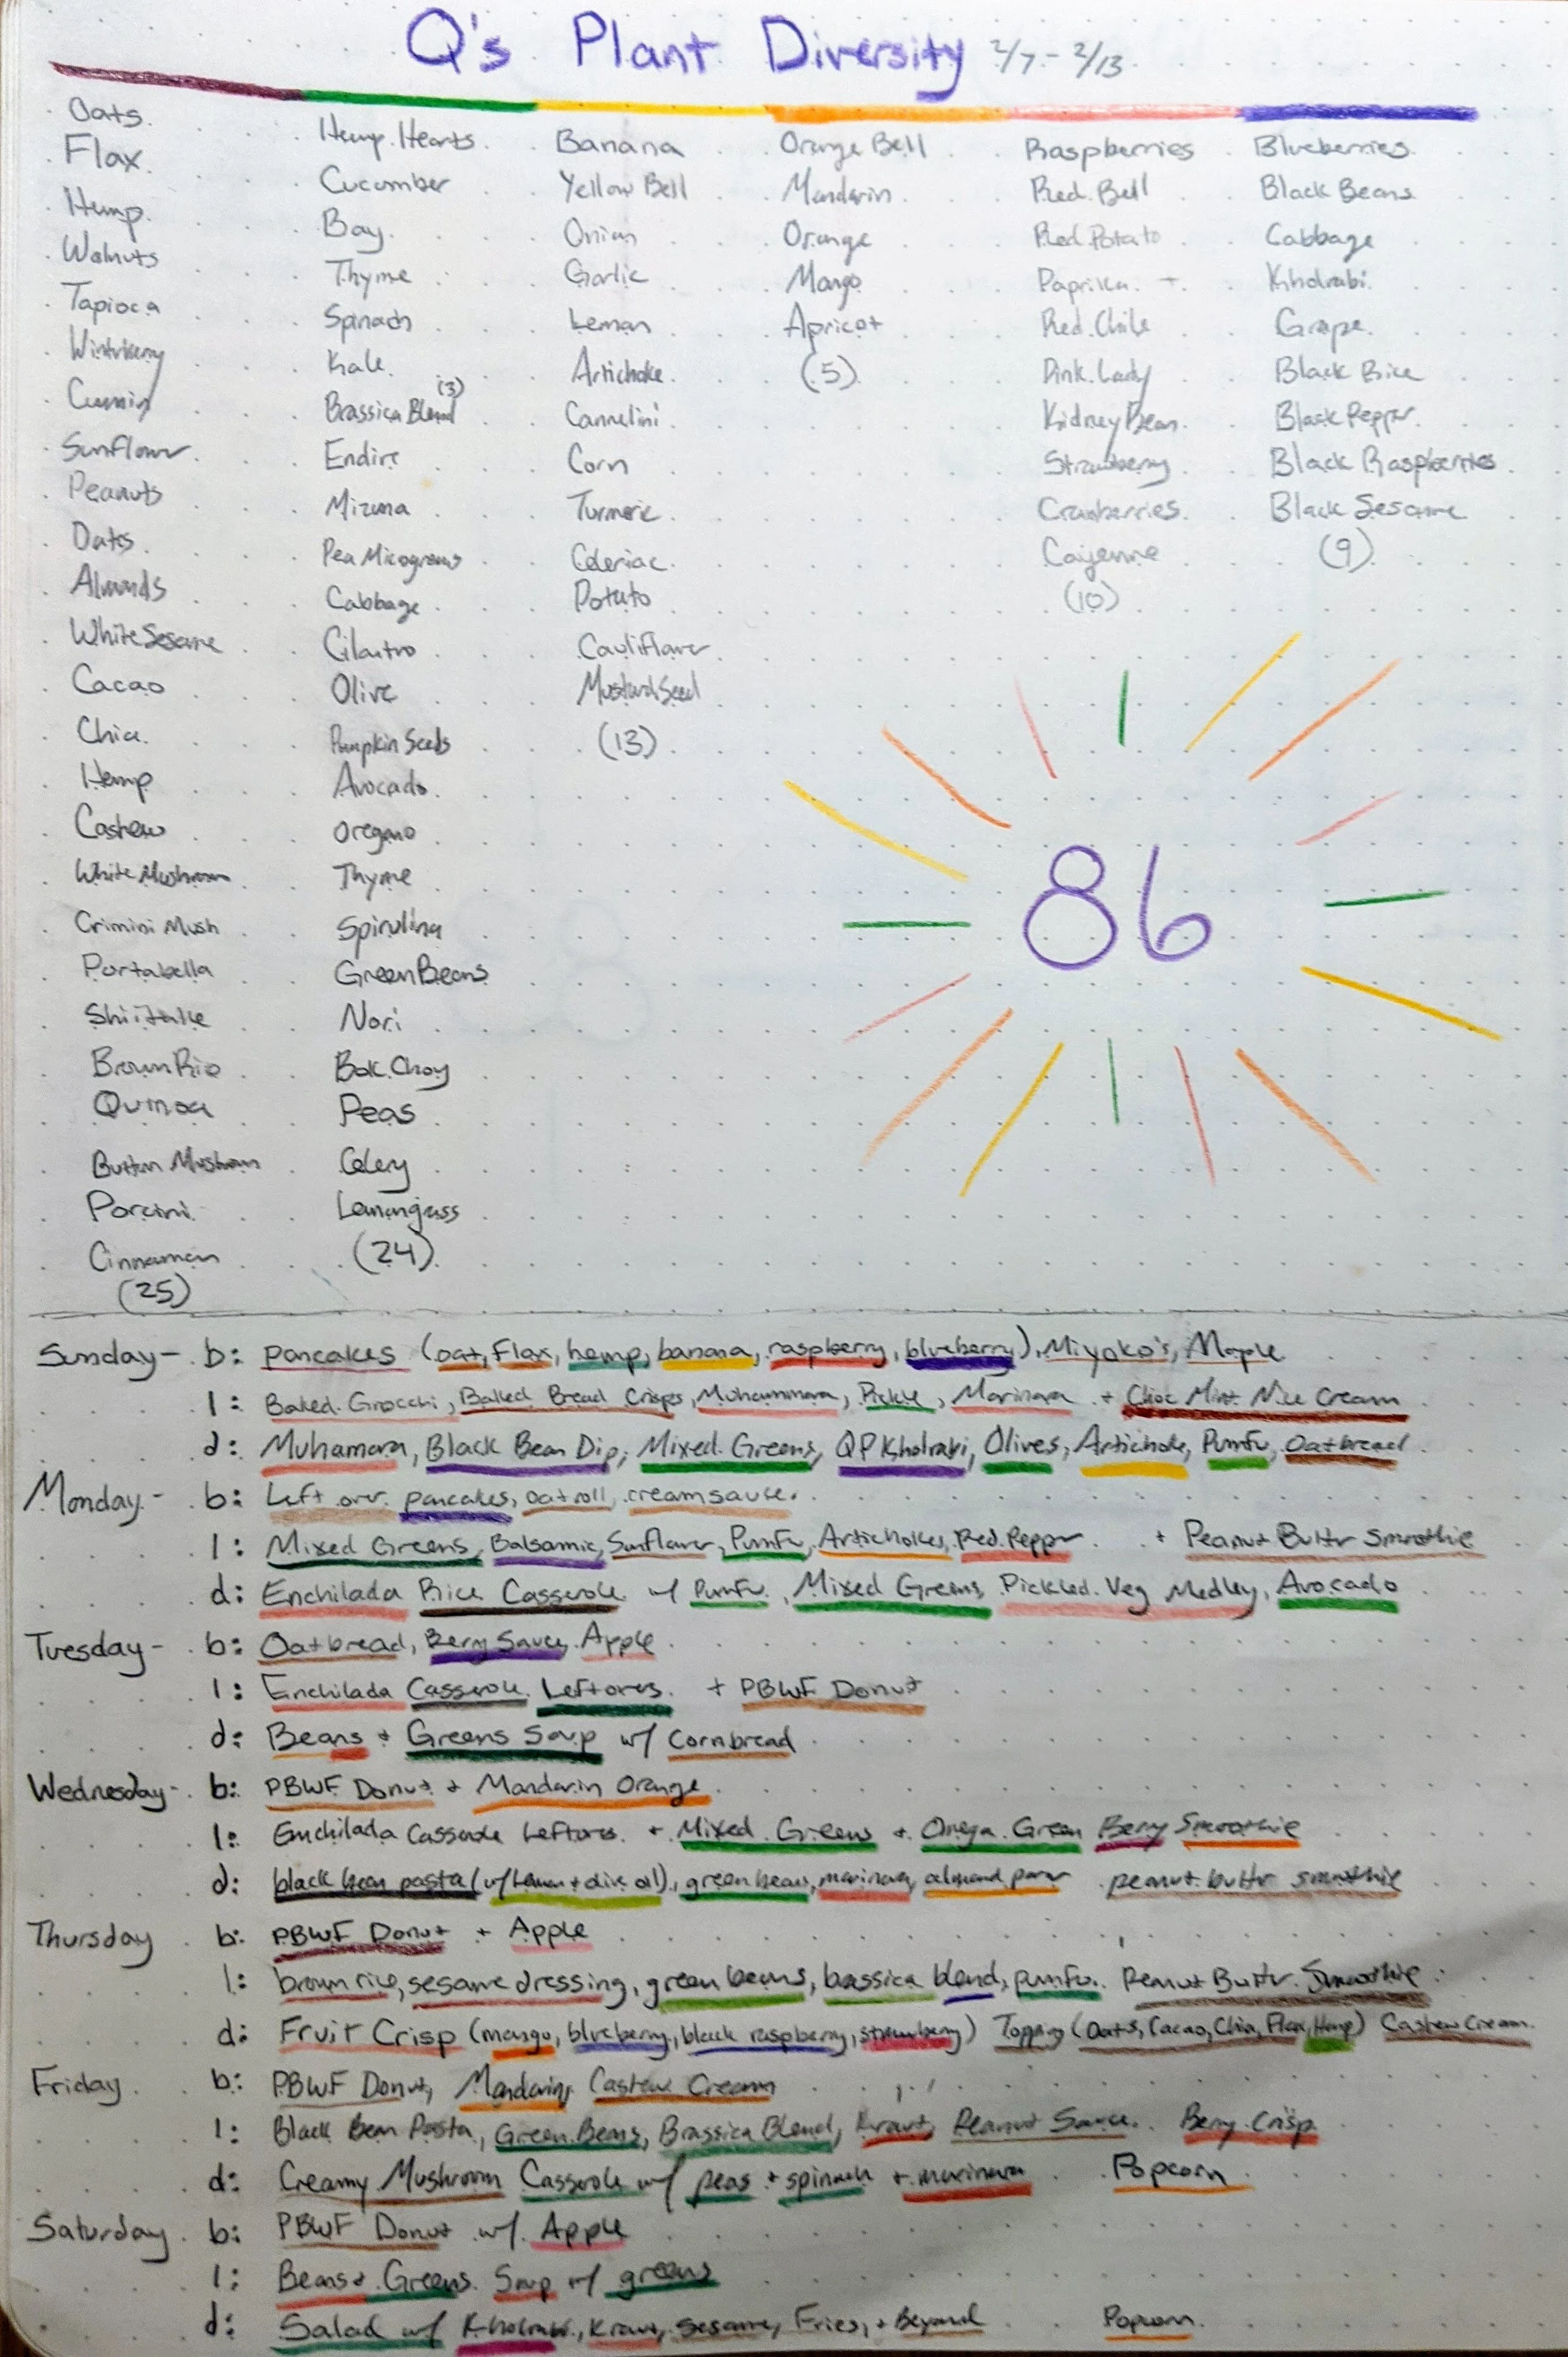 Q's Plant Diversity 2/7 - 2/13
Oats
Flax
Hemp
Walnuts
Tapioca
Cumin
Sunflower
Peanuts
Dates
Almonds
White Sesame
Cacao
Chia
Hemp
Cashew
White Mushroom
Crimini Mush
Portabella
Shiitake
Brown Rice
Quinoa
Button Mushroom
Porcini
Cinnamon
(25)
Hemp Hearts
Cucumber
Bay
Thyme
Spinach
Kale
Brassica Blend (3)
Endive
Mizuna
Pea Microgreens
Cabbage
Cilantro
Olive
Pumpkin Seeds
Avocado
Oregano
Thyme
Spirulina
Green Beans
Nori
Bok Choy
Peas
Celery
Lemongrass
(24)
Banana
Yellow Bell
Onion
Garlic
Lemon
Artichoke
Cannelini
Corn
Turmeric
Celeriac
Potato
Cauliflower
Mustard Seed
(13)
Orange Bell
Mandarin
Orange
Mango
Apricot
(5)
Raspberries
Red Bell
Red Potato
Paprika
Red Chile
Pink Lady
Kidney Bean
Strawberry
Cranberries
Cayenne
(10)
Blueberries
Black Beans
Cabbage
Kholrabi
Grape
Black Rice
Black Pepper
Black Raspberries
Black Sesame
(9)
86
Sunday - b: pancakes (oat, flax, hemp, banana, raspberry, blueberry), Miyoko's, Maple
l: Baked Gnocchi, Baked Bread Crisps, Muhammara, Pickle, Marinara + Choc Mint Nice Cream
d: Muhamara, Black Bean Dip, Mixed Greens, QP Kholrabi, Olives, Artichoke, Pumfu, Oatbread
Monday - b: Left over pancakes, oat roll, cream sauce.
l: Mixed Greens, Balsamic, Sunflower, Pumfu, Artichokes, Red Pepper + Peanut Butter Smoothie
d: Enchilada Rice Casserole w/ Pumfu, Mixed Greens, Pickled Veg Medley, Avocado
Tuesday - b: Oatbread, Berry Sauce, Apple
l: Enchilada Casserole Leftovers + PBWF Donut
d: Beans + Greens Soup w/ Cornbread
Wednesday - b: PBWF Donut + Mandarin Orange
l: Enchilada Casserole Leftovers + Mixed Greens + Omega Green Berry Smoothie
d: black bean pasta (w/ lemon + olive oil), green beans, marinara, almond parm peanut buttr smoothie
Thursday b: PBWF Donut + Apple
l: brown rice, sesame dressing, green beans, brassica blend, pumfu. Peanut Buttr Smoothie
d: Fruit Crisp (mango, blueberry, black raspberry, strawberry) Topping (Oats, Cacao, Chia, Flax, Hemp) Cashew Cream.
Friday b: PBWF Donut, Mandarin, Cashew Cream
l: Black Bean Pasta, Green Beans, Brassica Blend, Kraut, Peanut Sauce. Berry Crisp
d: Creamy Mushroom Casserole w/ peas + spinach + marinara Popcorn
Saturday b: PBWF Donut w/ Apple
l: Beans + Greens Soup w/ greens
d: Salad w/ Kholrabi, Kraut, Sesame, Fries, + Beyond Popcorn